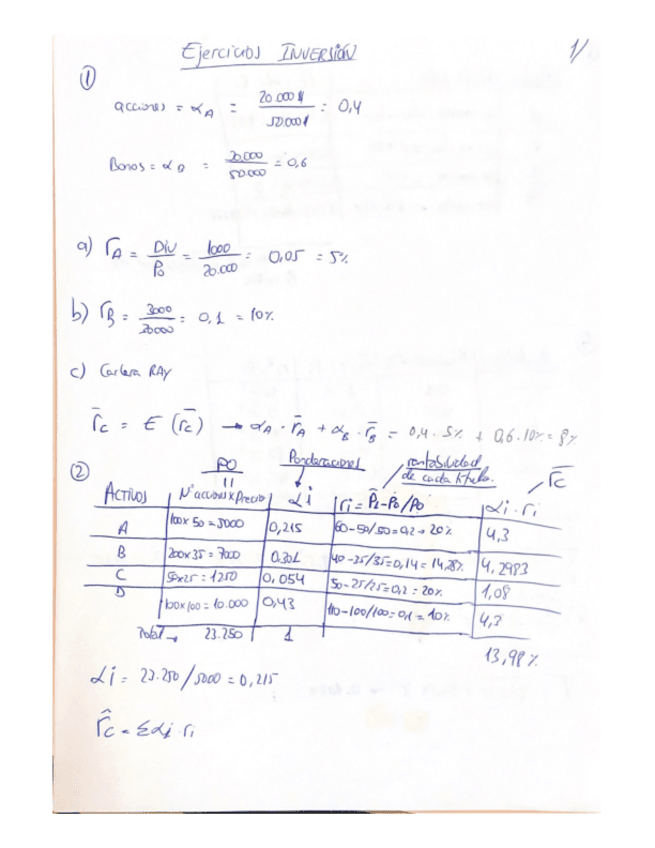 Ejercicios INVERSIÓN 1/
①
acciones = αA = 20.000 $ / 50.000 $ = 0,4
Bonos = αB = 30.000 / 50.000 = 0,6
a) rA = Div / P0 = 1000 / 20.000 = 0,05 = 5%
b) rB = 3000 / 30000 = 0,1 = 10%
c) Cartera RAY
r̄c = E (r̄c) → αA · r̄A + αB · r̄B = 0,4 · 5% + 0,6 · 10% = 8%
②
P0 Ponderaciones rentabilidad de cada título. r̄c
ACTIVOS Nº acciones x Precio αi ri = P̄1-P0/P0 αi · ri
A 100x50 = 5000 0,215 60-50/50=0,2→20% 4,3
B 200x35 = 7000 0.301 40-35/35=0,14=14,28% 4,2983
C 50x25 = 1250 0,054 50-25/25=0,2=20% 1,08
D 100x100 = 10.000 0,43 110-100/100=0,1=10% 4,3
Total → 23.250 1
13,98%
αi = 23.250/5000 = 0,215
r̂c = Σαi · ri